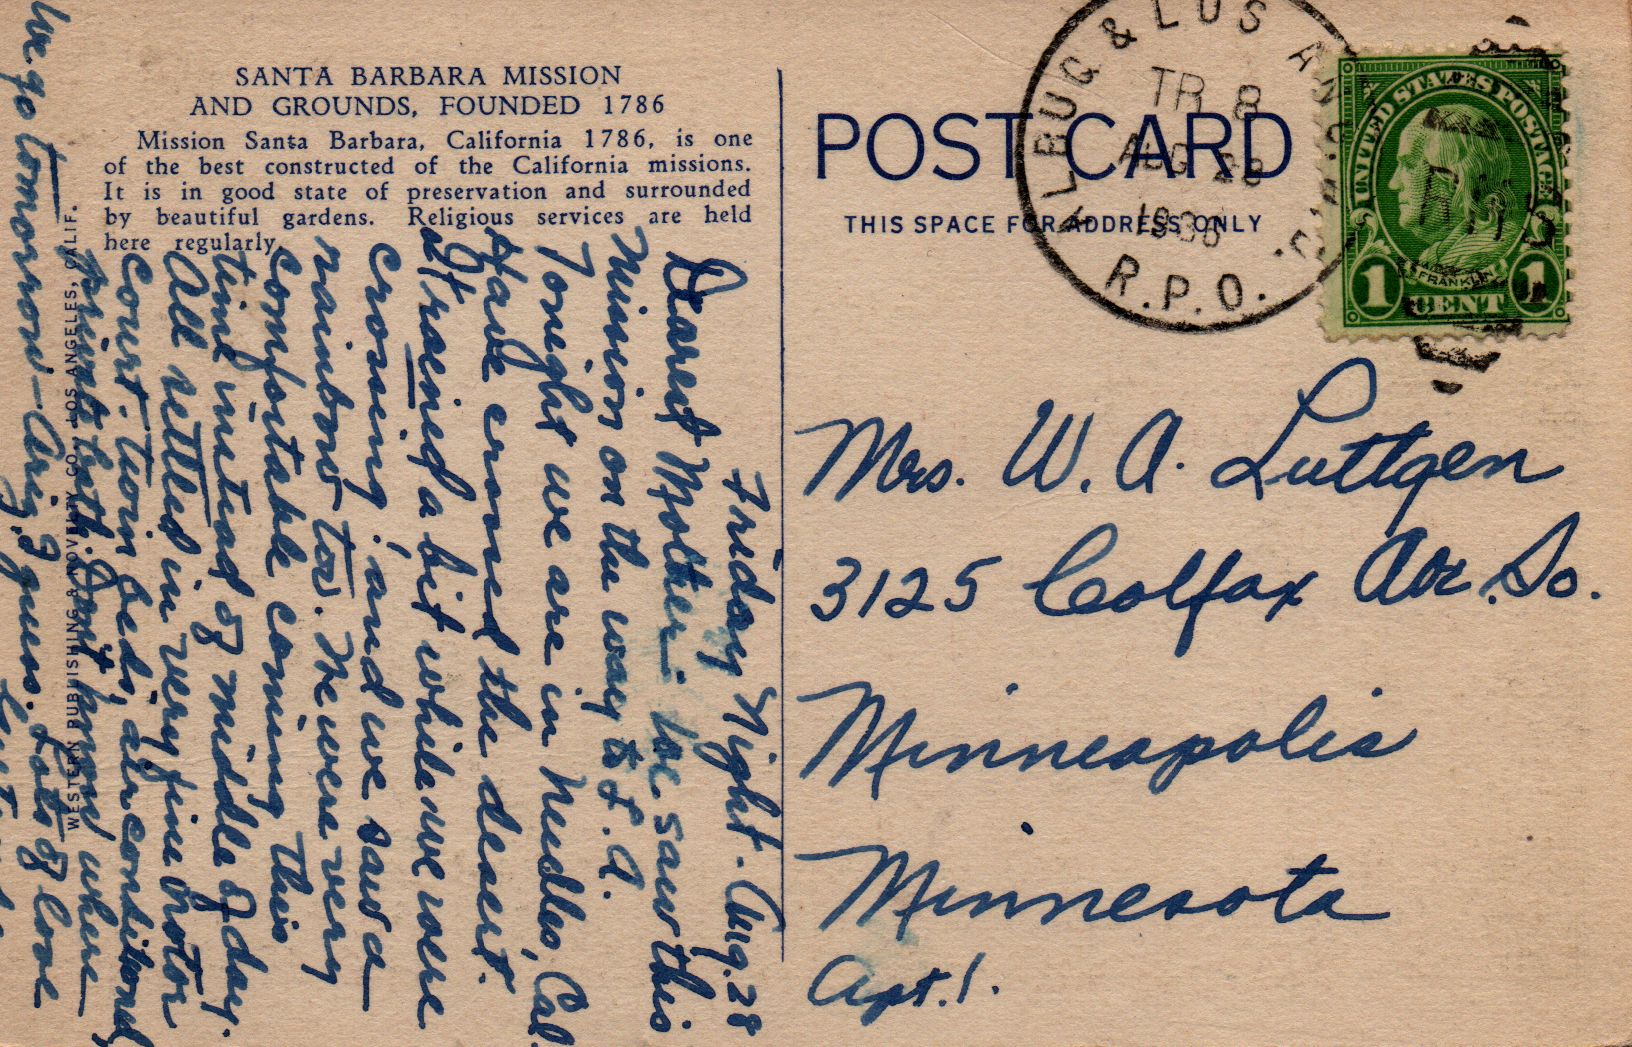 SANTA BARBARA MISSION
AND GROUNDS, FOUNDED 1786
Mission Santa Barbara, California 1786, is one
of the best constructed of the California missions.
It is in good state of preservation and surrounded
by beautiful gardens. Religious services are held
here regularly.
WESTERN PUBLISHING & NOVELTY CO., LOS ANGELES, CALIF.
Friday Night - Aug. 28
Dearest Mother - We saw this
Mission on the way to L.A.
Tonight we are in Needles, Cal.
Have crossed the desert.
It rained a bit while we were
crossing, and we saw a
rainbow too. We were very
comfortable coming this
time instead of middle of day.
All settled in very fine motor
court. Twin beds, air conditioned,
private bath. Don't know where
we go tomorrow - Ariz. I guess. Lots of love
POST CARD
THIS SPACE FOR ADDRESS ONLY
ALBUQ & LOS ANG
TR 8
AUG 28
1936
R.P.O.
UNITED STATES POSTAGE
FRANKLIN
1 CENT 1
RMS
Mrs. W. A. Luttgen
3125 Colfax Ave. So.
Minneapolis
Minnesota
Apt. 1.